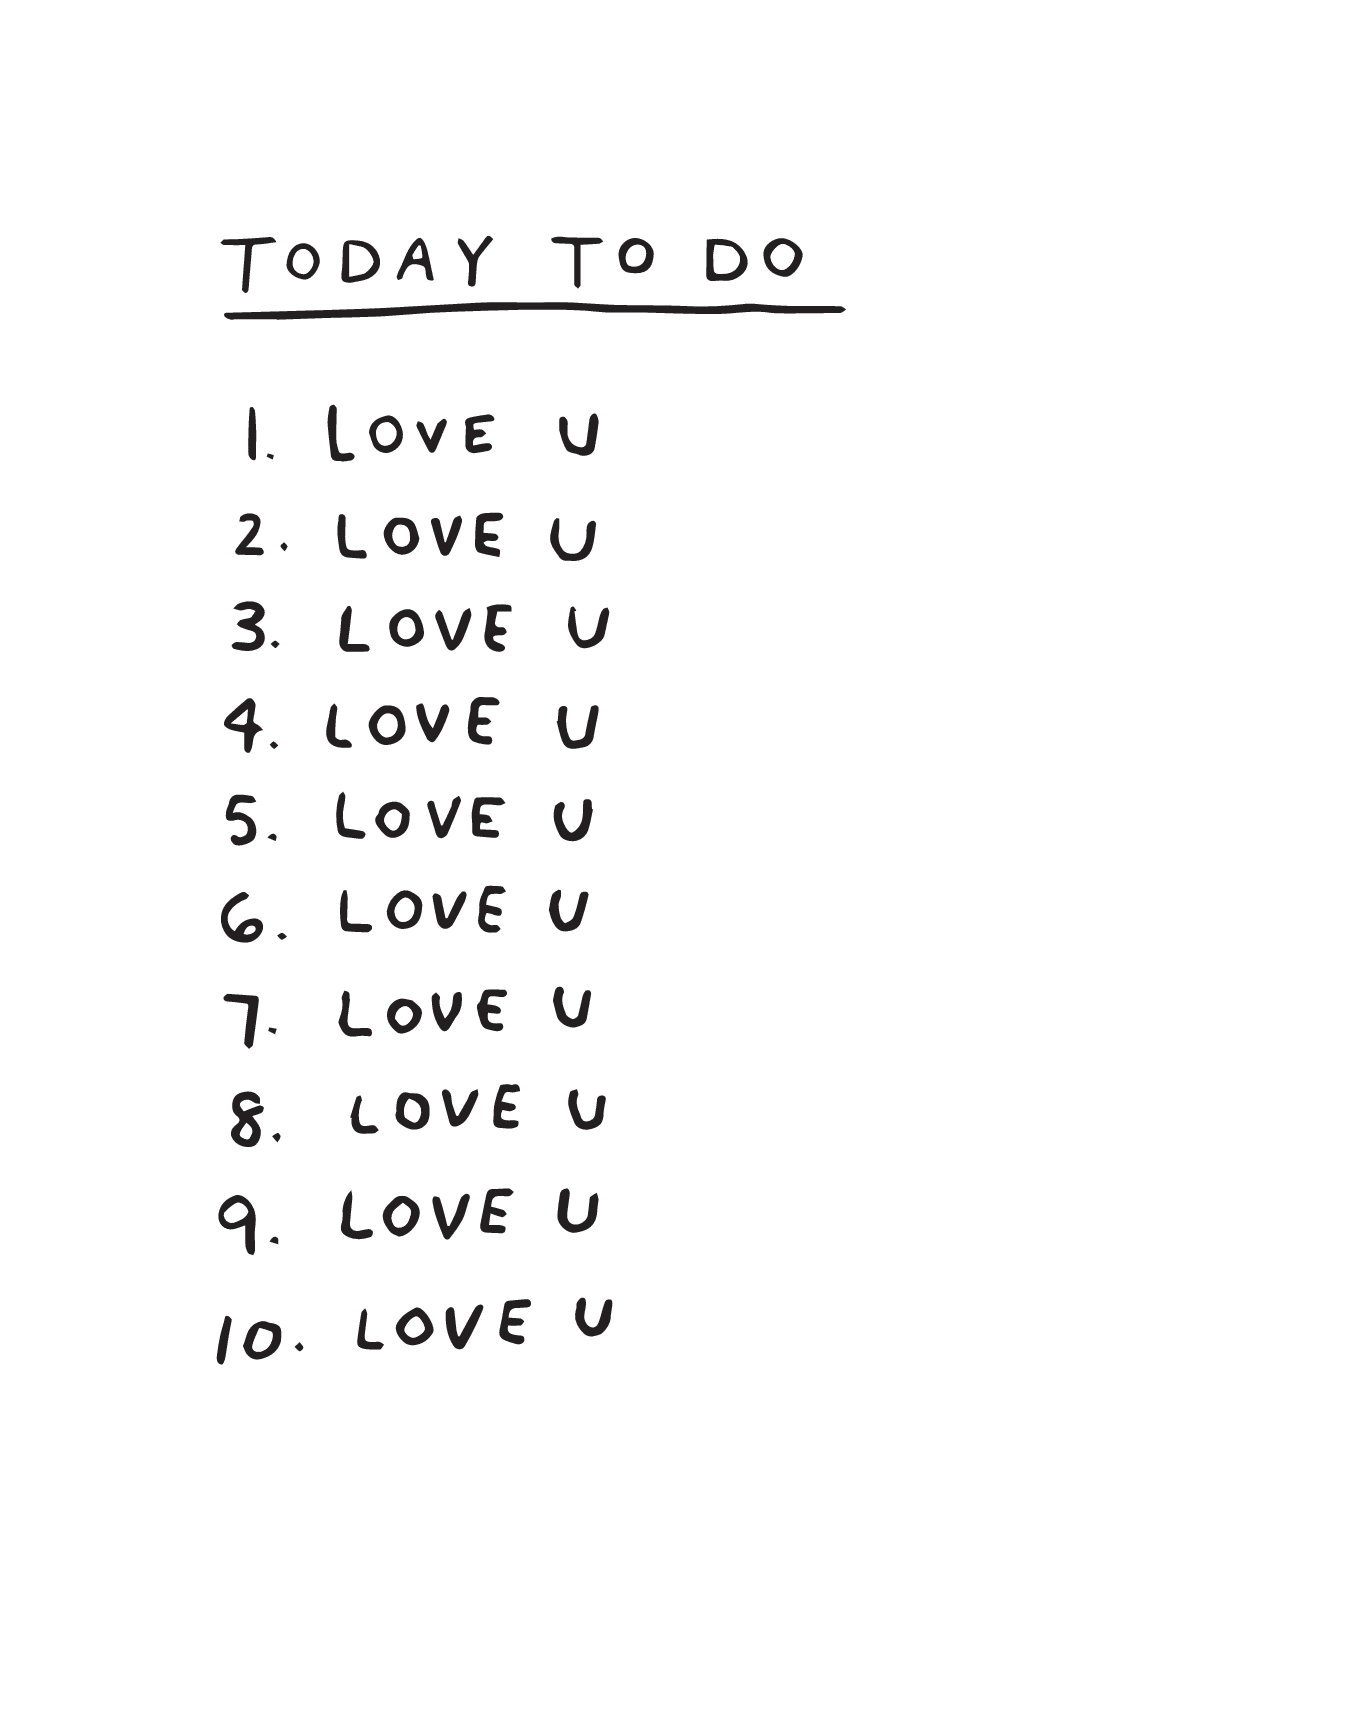 TODAY TO DO
1. LOVE U
2. LOVE U
3. LOVE U
4. LOVE U
5. LOVE U
6. LOVE U
7. LOVE U
8. LOVE U
9. LOVE U
10. LOVE U